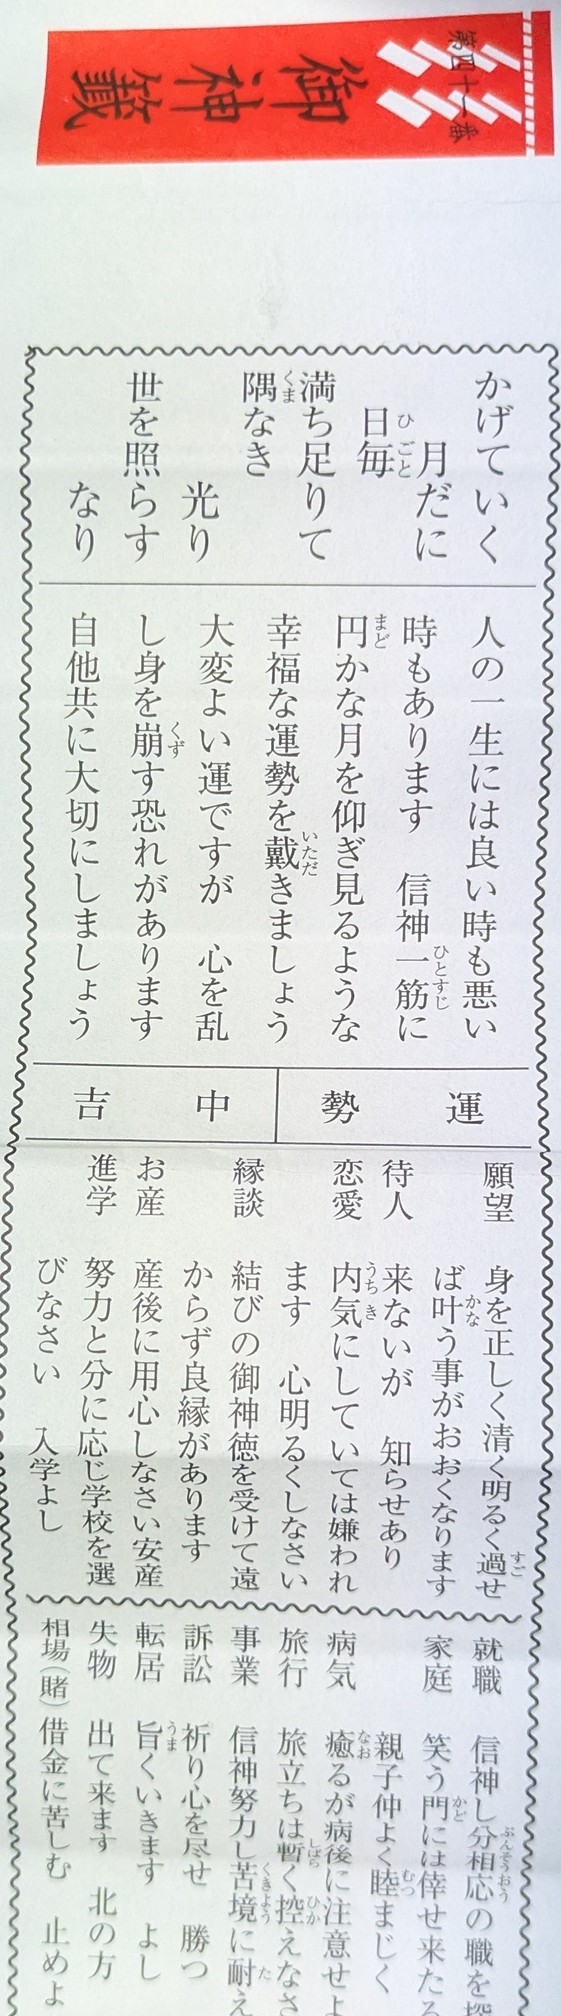 第四十一番
御神籤
かげていく
月だに
日毎
満ち足りて
隅なき
光り
世を照らす
なり
人の一生には良い時も悪い
時もあります 信神一筋に
円かな月を仰ぎ見るような
幸福な運勢を戴きましょう
大変よい運ですが 心を乱
し身を崩す恐れがあります
自他共に大切にしましょう
運勢
中吉
願望 身を正しく清く明るく過せ
ば叶う事がおおくなります
待人 来ないが 知らせあり
恋愛 内気にしていては嫌われ
ます 心明るくしなさい
縁談 結びの御神徳を受けて遠
からず良縁があります
お産 産後に用心しなさい安産
進学 努力と分に応じ学校を選
びなさい 入学よし
就職 信神し分相応の職を
家庭 笑う門には倖せ来たる
親子仲よく睦まじく
病気 癒るが病後に注意せよ
旅行 旅立ちは暫く控えなさ
事業 信神努力し苦境に耐え
訴訟 祈り心を尽せ 勝つ
転居 旨くいきます よし
失物 出て来ます 北の方
相場(賭) 借金に苦しむ 止めよ